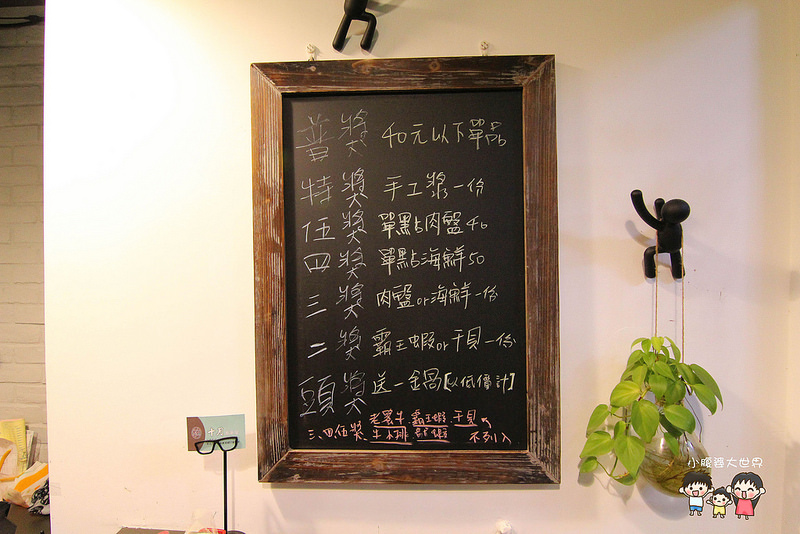 普獎 40元以下單品
特獎 手工漿一份
伍獎 單點肉盤40
四獎 單點海鮮50
三獎 肉盤or海鮮一份
二獎 霸王蝦or干貝一份
頭獎 送一鍋[以低價計]
老饕牛 霸王蝦 干貝
三、四、伍獎 牛小排 龍蝦 不列入
小腹婆大世界